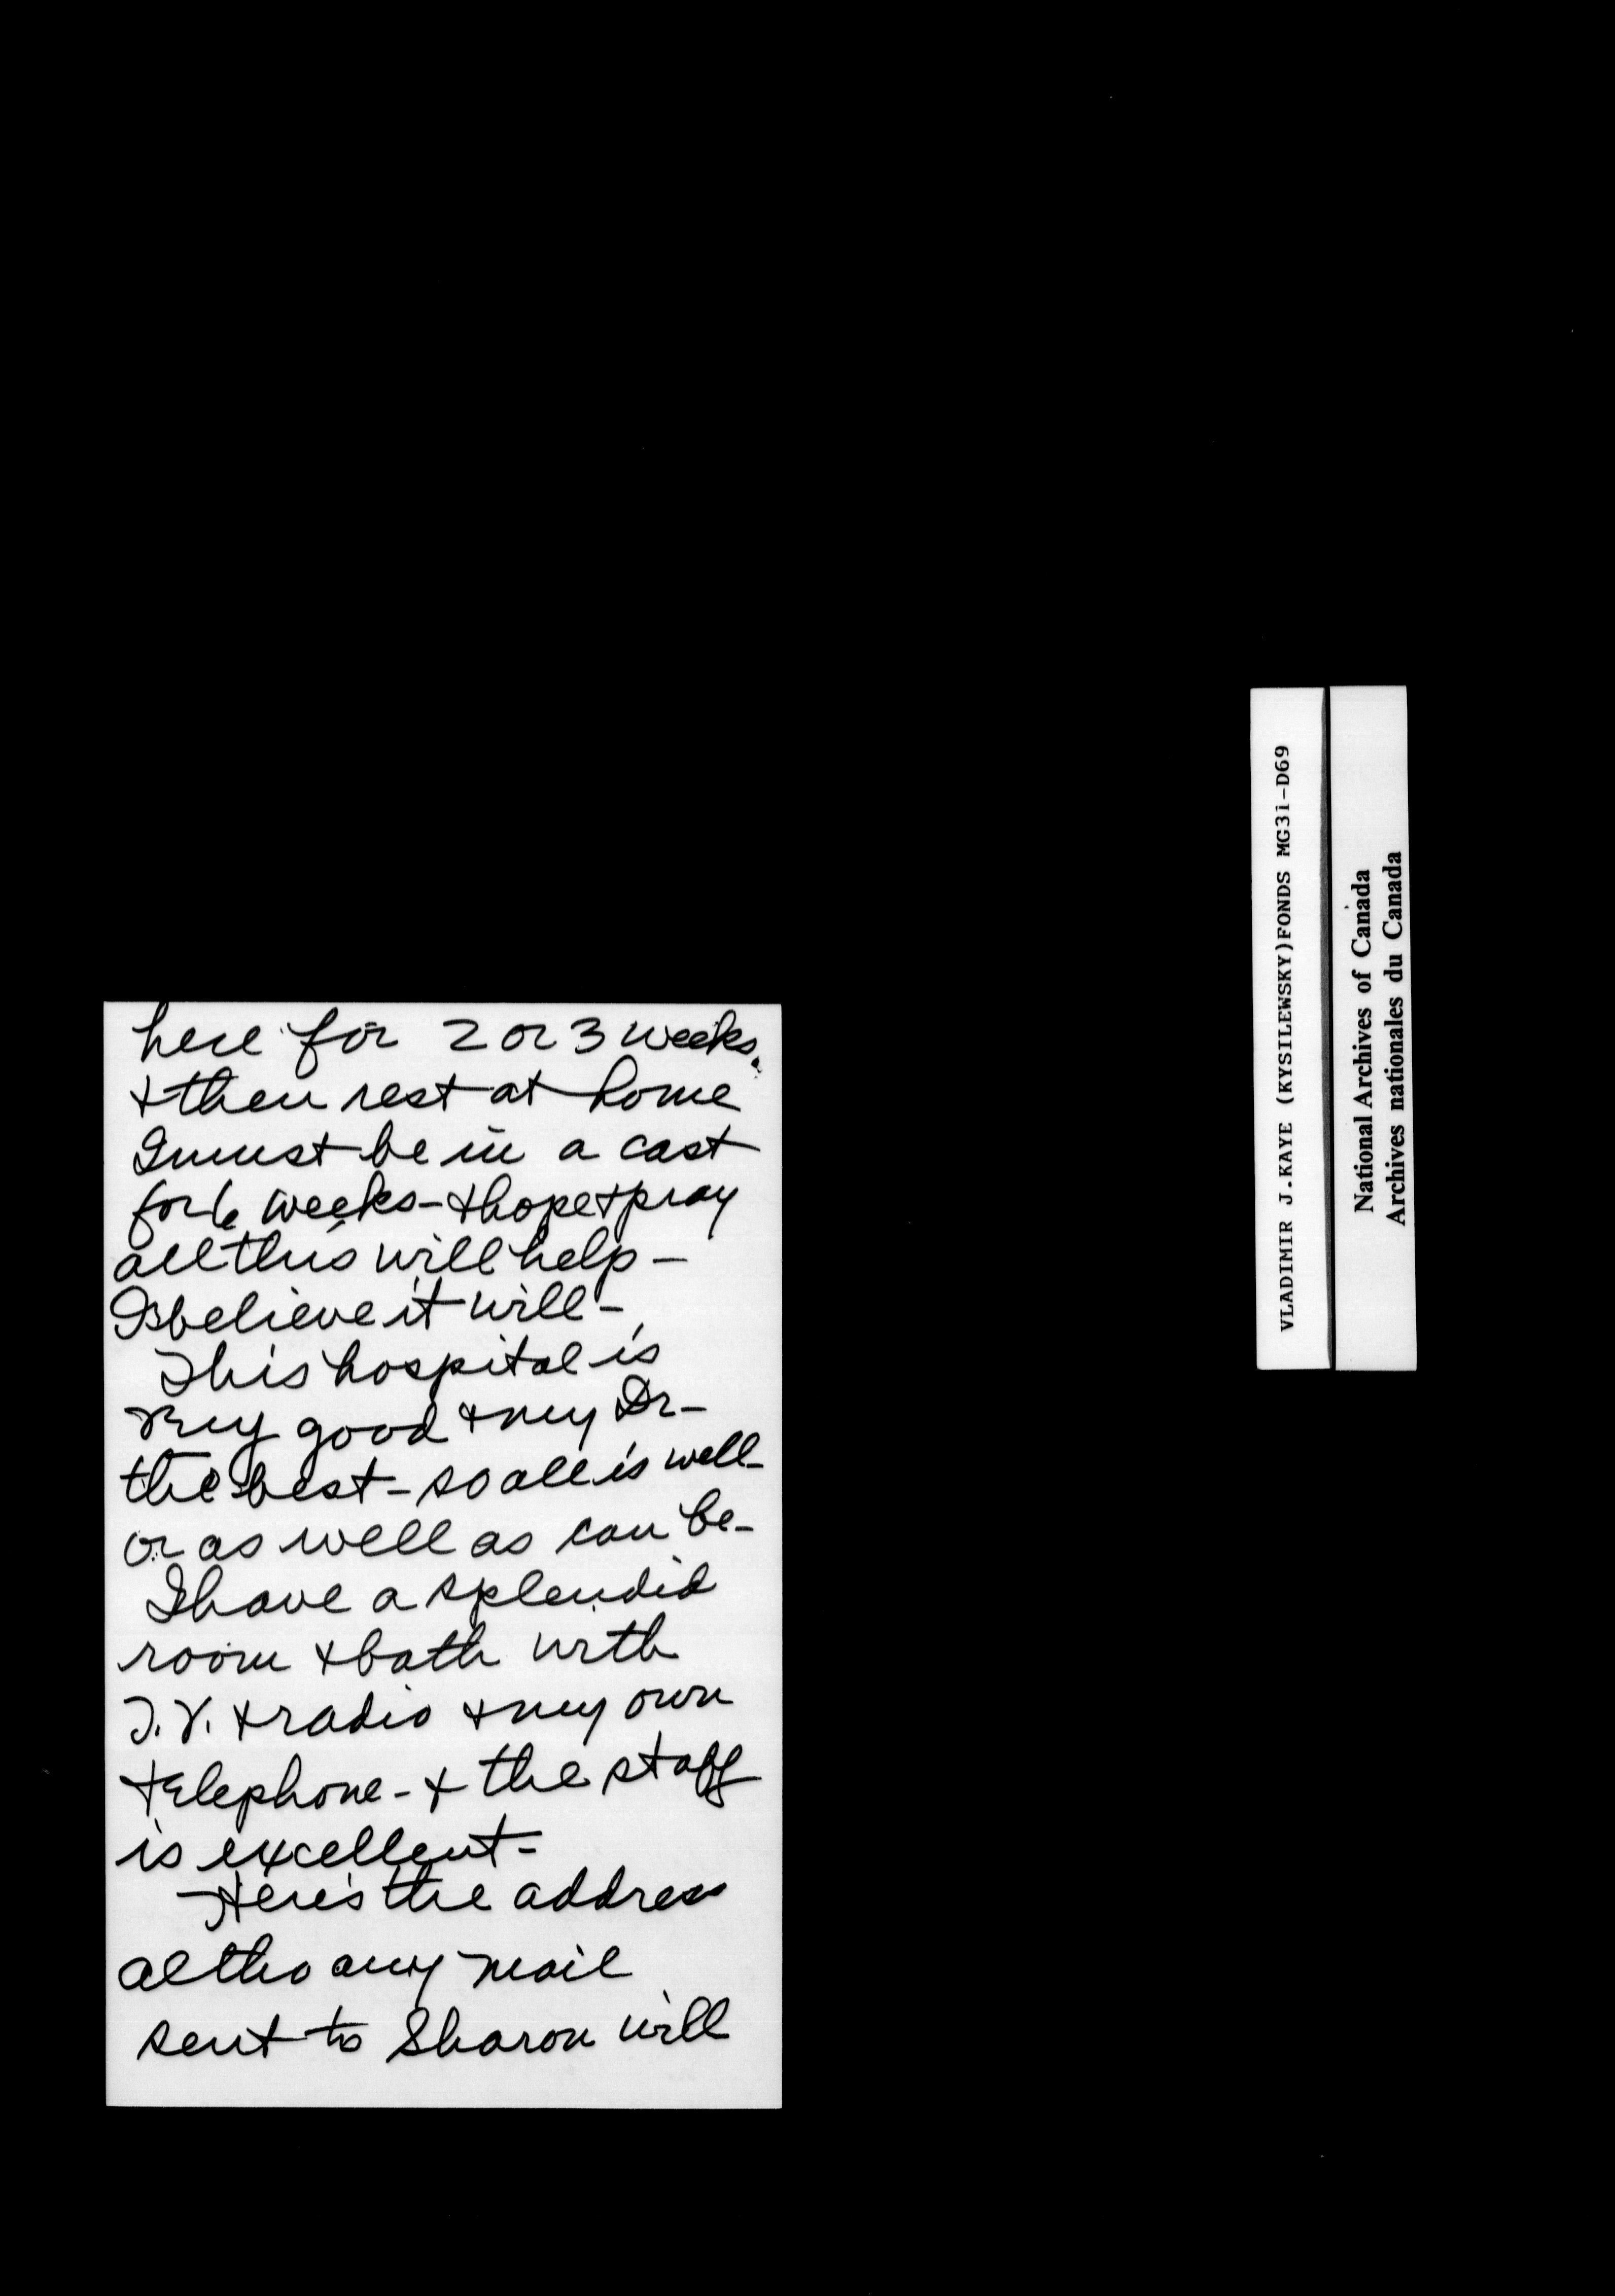 here for 2 or 3 weeks.
+ then rest at home
I must be in a cast
for 6 weeks - + hope + pray
all this will help -
I believe it will -
This hospital is
very good + my Dr -
the best - so all is well -
or as well as can be -
I have a splendid
room + bath with
T.V. + radio + my own
telephone - + the staff
is excellent -
Here's the address
altho any mail
sent to Sharon will
VLADIMIR J.KAYE (KYSILEWSKY)FONDS MG31-D69
National Archives of Canada
Archives nationales du Canada